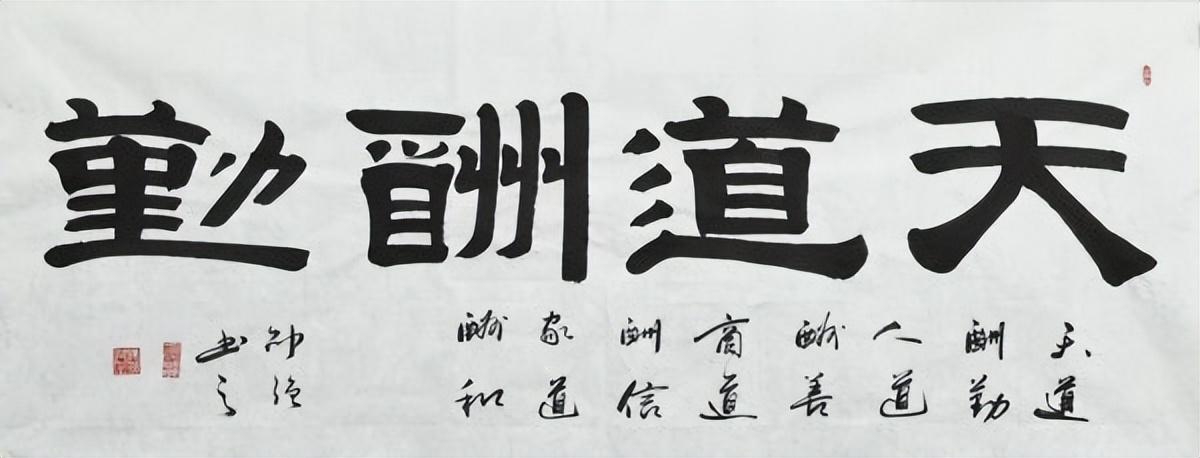 天道酬勤
天道
酬勤
人道
酬善
商道
酬信
家道
酬和
书之